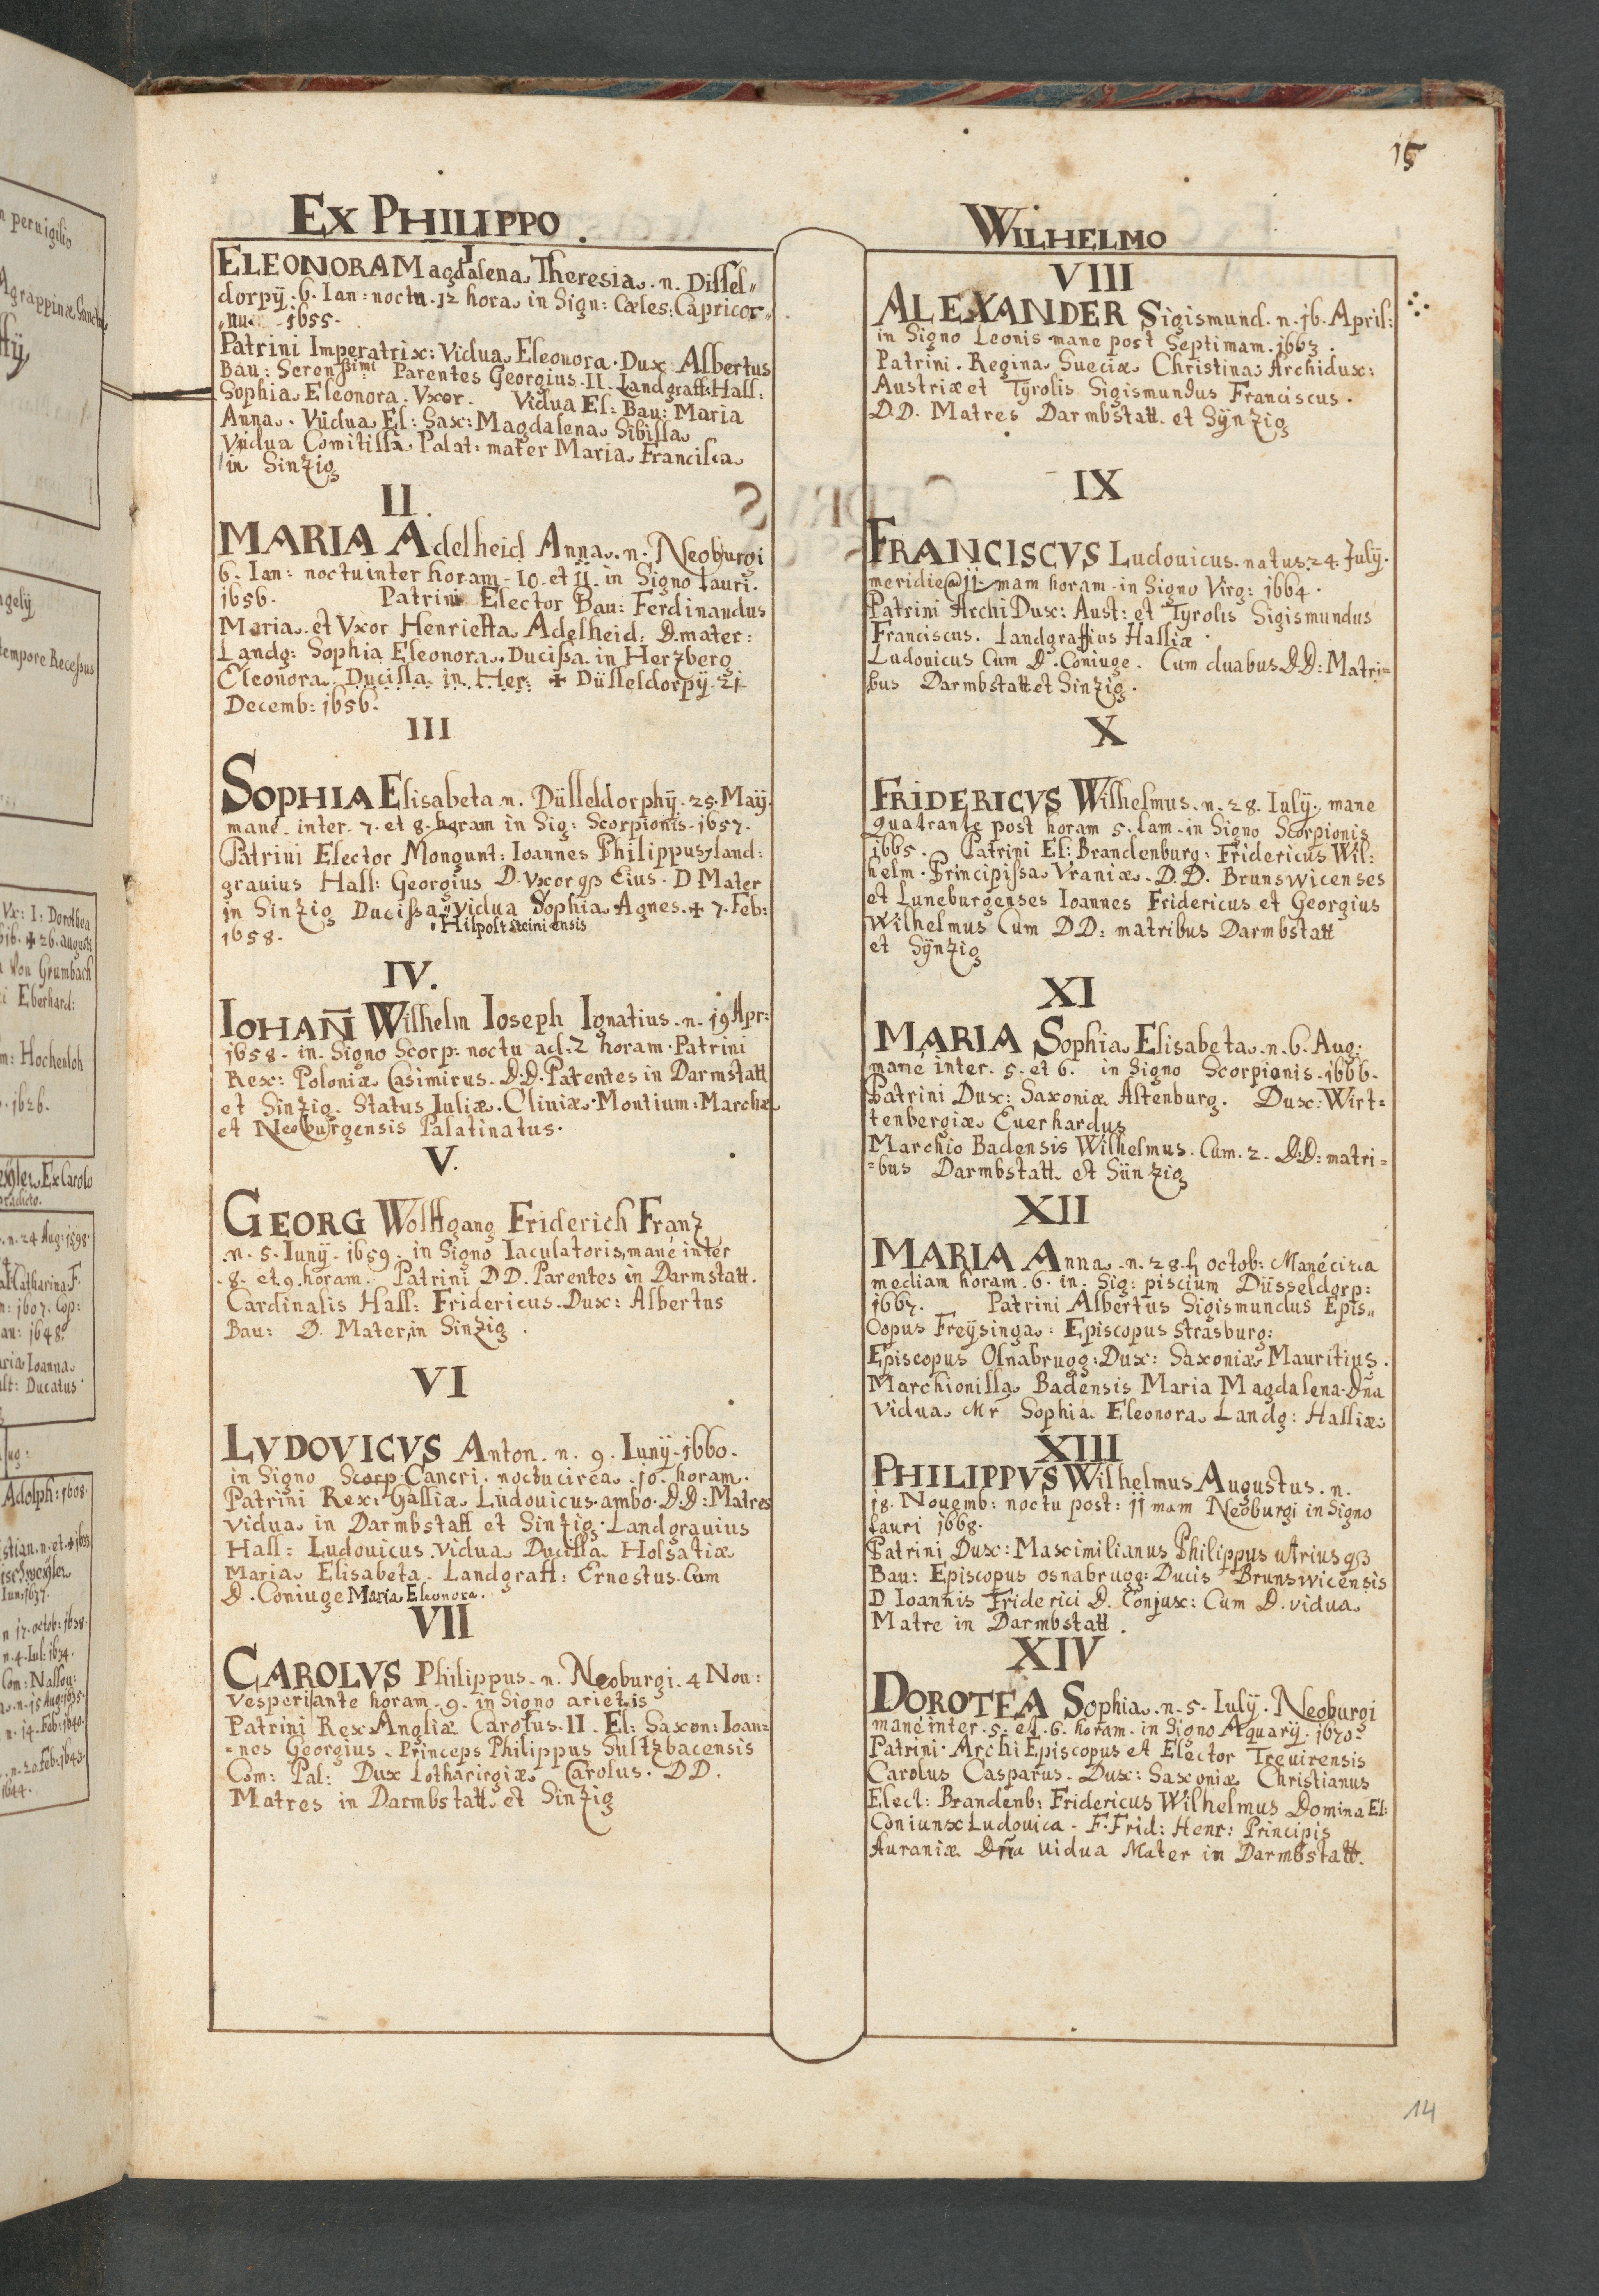 15
EX PHILIPPO
I
ELEONORA Magdalena Theresia. n. Dissel„
dorpÿ. 6. Ian: noctu. 12 hora in Sign: Cæles: Capricor„
„nu. 1655.
Patrini Imperatrix: Vidua Eleonora. Dux Albertus
Bau: Serenßimi Parentes Georgius. II. Landgraff: Hass:
Sophia Eleonora. Vxor. Vidua El: Bau: Maria
Anna. Vidua El: Sax: Magdalena Sibilla
Vidua Comitissa Palat: mater Maria Francisca
in Sinzig
II.
MARIA Adelheid Anna. n. Neoburgi
6. Ian: noctu inter horam. 10. et 11. in Signo tauri.
1656. Patrini Elector Bau: Ferdinandus
Maria. et Vxor Henrietta Adelheid: D. mater:
Landg: Sophia Eleonora. Ducissa in Herzberg
Eleonora. Ducissa in Her: ✠ Düsseldorpÿ. 21.
Decemb: 1656.
III
SOPHIA Elisabeta n. Düsseldorphÿ. 25. Maÿ.
mane. inter. 7. et 8. horam in Sig: Scorpionis. 1657.
Patrini Elector Mongunt: Ioannes Philippus, land:
grauius Hass: Georgius D. Vxor qß Eius. D Mater
in Sinzig Ducissa vidua Sophia Agnes. ✠ 7. Feb:
Hilpoltsteiniensis
1658.
IV.
IOHAN̄ Wilhelm Ioseph Ignatius. n. 19 Apr:
1658. in. Signo Scorp: noctu ad: 2 horam. Patrini
Rex: Poloniæ Casimirus. D.D. Parentes in Darmstatt
et Sinzig. Status Iuliæ. Cliuiæ. Montium. Marchæ
et Neoburgensis Palatinatus.
V.
GEORG Wolffgang Friderich Franz
n. 5. Iunÿ. 1659. in Signo Iaculatoris, mane inter
8. et 9. horam. Patrini DD. Parentes in Darmstatt.
Cardinalis Hass: Fridericus. Dux: Albertus
Bau: D. Mater, in Sinzig.
VI
LVDOVICVS Anton. n. 9. Iunÿ. 1660.
in Signo Scorp Cancri. noctu circa. 10. horam.
Patrini Rex: Galliæ Ludouicus. ambo. D.D: Matres
vidua in Darmbstatt et Sinzig. Landgrauius
Hass: Ludouicus. vidua Ducissa Holsatiæ
Maria Elisabeta. Landgraff: Ernestus. Cum
D. Coniuge Maria Eleonora.
VII
CAROLVS Philippus. n. Neoburgi. 4 Nou:
Vesperi ante horam. 9. in Signo arietis
Patrini Rex Angliæ Carolus. II. El: Saxon: Ioan=
=nes Georgius. Princeps Philippus Sultzbacensis
Com: Pal: Dux Lotharingiæ Carolus. DD.
Matres in Darmbstatt et Sinzig
WILHELMO
VIII
ALEXANDER Sigismund. n. 16. April:
in Signo Leonis mane post Septimam. 1663.
Patrini. Regina Sueciæ Christina Archidux:
Austriæ et Tyrolis Sigismundus Franciscus.
D.D. Matres Darmbstatt. et Sÿnzig
IX
FRANCISCVS Ludouicus. natus. 24. Julÿ.
meridie @ 11. mam horam. in Signo Virg: 1664.
Patrini ArchiDux: Aust: et Tyrolis Sigismundus
Franciscus. Landgraffius Hassiæ.
Ludouicus Cum D. Coniuge. Cum duabus D.D: Matri=
bus Darmbstatt et Sinzig.
X
FRIDERICVS Wilhelmus. n. 28. Iulÿ, mane
quatrante post horam 5. tam. in Signo Scorpionis
1665. Patrini El: Brandenburg: Fridericus Wil:
helm. Principissa Vraniæ. D.D. Brunswicenses
et Luneburgenses Ioannes Fridericus et Georgius
Wilhelmus Cum DD: matribus Darmbstatt
et Sÿnzig
XI
MARIA Sophia Elisabeta. n. 6. Aug:
mane inter. 5. et 6. in Signo Scorpionis. 1666.
Patrini Dux: Saxoniæ Altenburg. Dux: Wirt=
tenbergiæ Euerhardus
Marchio Badensis Wilhelmus. Cum. 2. D.D: matri=
=bus Darmbstatt. et Sünzig
XII
MARIA Anna. n. 28. octob: Mane circa
mediam horam. 6. in. Sig: piscium Düsseldorp:
1667. Patrini Albertus Sigismundus Epis„
Copus Freÿsinga: Episcopus strasburg:
Episcopus Osnabrugg: Dux: Saxoniæ Mauritius.
Marchionissa Badensis Maria Magdalena. Dña
Vidua Mr Sophia Eleonora Landg: Hassiæ:
XIII
PHILIPPVS Wilhelmus Augustus. n.
18. Nouemb: noctu post: 11 mam Neoburgi in Signo
tauri 1668.
Patrini Dux: Maximilianus Philippus utrius qß
Bau: Episcopus osnabrugg: Ducis Brunswicensis
D Ioannis Friderici D. Conjux: Cum D. vidua
Matre in Darmbstatt.
XIV
DOROTEA Sophia. n. 5. Iulÿ. Neoburgi
mane inter. 5. et. 6. horam. in Signo Aquarÿ. 1670.
Patrini. ArchiEpiscopus et Elector Treuirensis
Carolus Casparus. Dux: Saxoniæ Christianus
Elect: Brandenb: Fridericus Wilhelmus Domina El:
Coniunx Ludouica. F. Frid: Henr: Principis
Auraniæ Dña Uidua Mater in Darmbstatt.
14